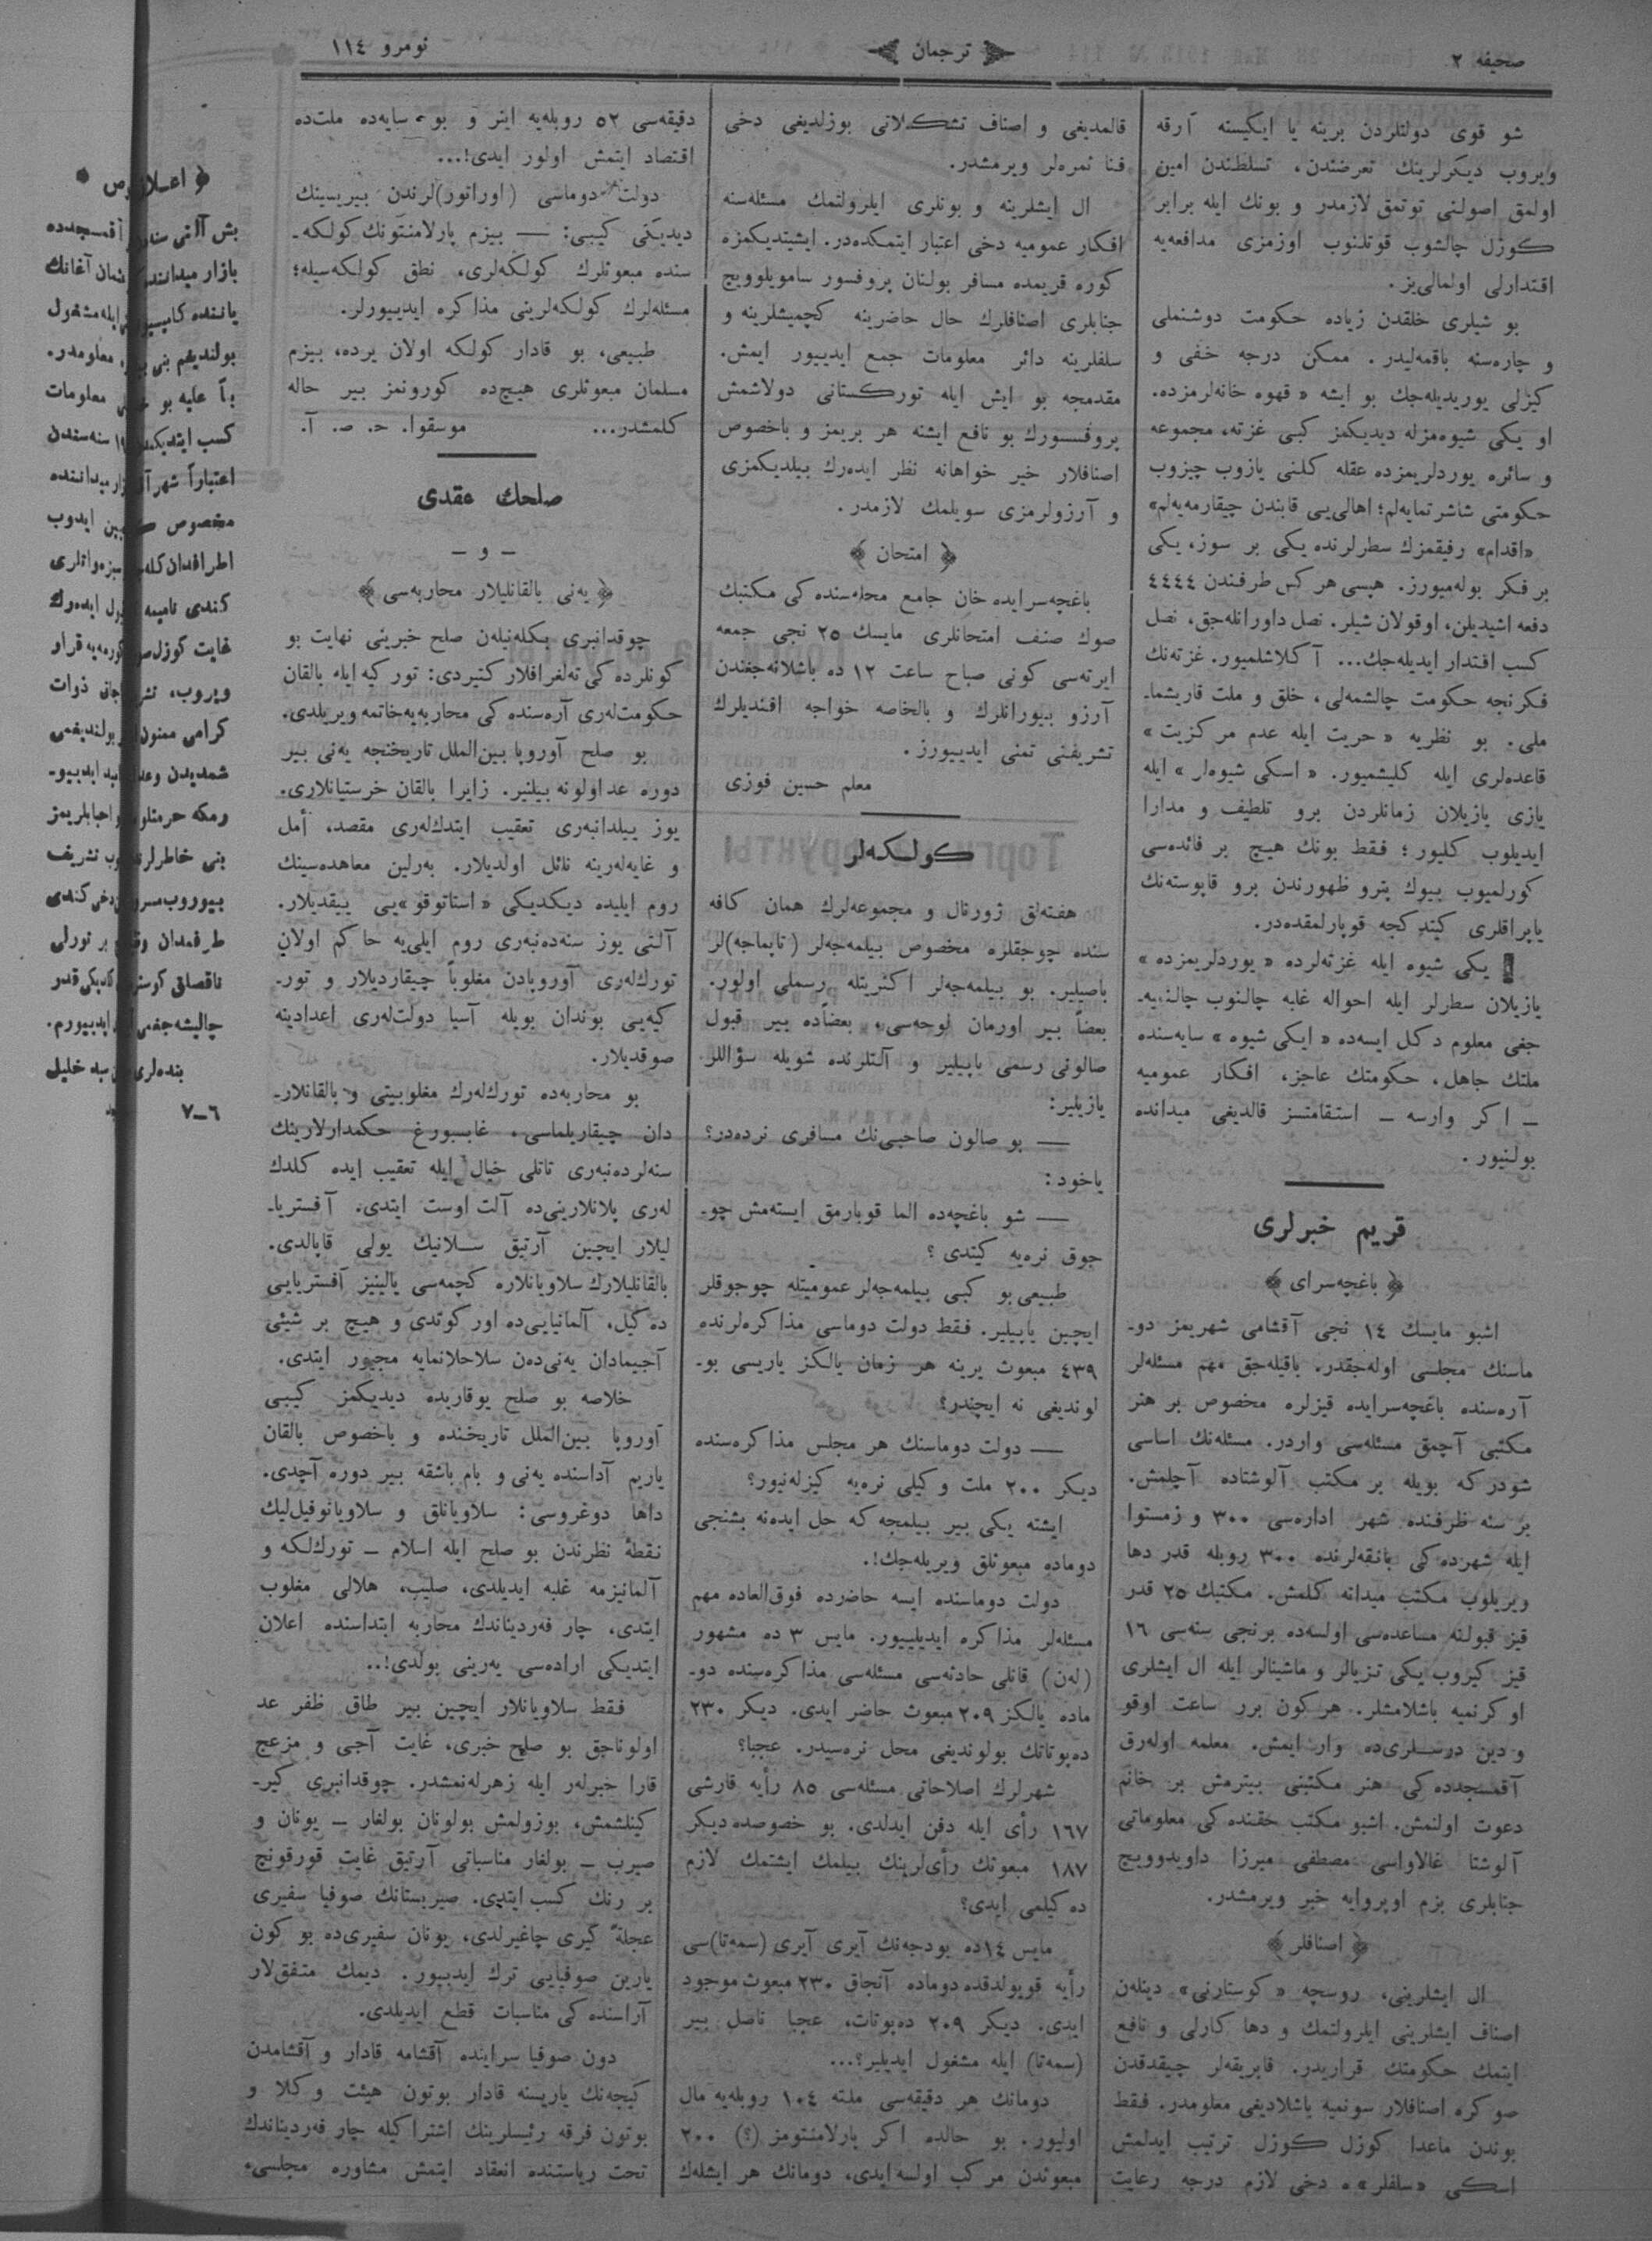 صحیفه ٢
ترجمان
نومرو ١١٤
شو قوی دولتلردن برینه یا ایکیسنه آرقه
ویروب دیکرلرینك تعرضندن، تسلطندن امین
اولمق اصولنی توتمق لازمدر و بونك ایله برابر
كوزل چالشوب قوتلنوب اوزمزی مدافعه‌یه
اقتدارلی اولمالی‌یز.
بو شیلری خلقدن زیاده حکومت دوشنملی
و چاره‌سنه باقمه‌لیدر. ممکن درجه خفی و
کیزلی یوریدیله‌جك بو ایشه «قهوه خانه‌لرمزده.
او یکی شیوه‌مزله دیدیکمز کبی غزته، مجموعه
و سائره یوردلریمزده عقله کلنی یازوب چیزوب
حکومتی شاشرتمایه‌لم؛ اهالی‌یی قابندن چیقارمه‌یه‌لم»
«اقدام» رفیقمزك سطرلرنده یکی بر سوز، یکی
بر فکر بوله‌میورز. هپسی هر کس طرفندن ٤٤٤٤
دفعه اشیدیلن، اوقولان شیلر. نصل داورانله‌جق، نصل
کسب اقتدار ایدیله‌جك... آکلاشلمیور. غزته‌نك
فکرنجه حکومت چالشمه‌لی، خلق و ملت قاریشما۔
ملی. بو نظریه «حریت ایله عدم مرکزیت»
قاعده‌لری ایله کلیشمیور. «اسکی شیوه‌لر» ایله
یازی یازیلان زمانلردن برو تلطیف و مدارا
ایدیلوب کلیور؛ فقط بونك هیچ بر فائده‌سی
کورلمیوب بیوك پترو ظهورندن برو قاپوسته‌نك
یاپراقلری کیتدکجه قوپارلمقده‌در.
یکی شیوه ایله غزته‌لرده «یوردلریمزده»
یازیلان سطرلر ایله احواله غلبه چالنوب چالنمیه۔
جغی معلوم دکل ایسه‌ده «ایکی شیوه» سایه‌سنده
ملتك جاهل، حکومتك عاجز، افکار عمومیه
ــ اکر وارسه ــ استقامتسز قالدیغی میدانده
بولنیور.
قریم خبرلری
﴿ باغچه‌سرای ﴾
اشبو مایسك ١٤ نجی آقشامی شهریمز دو۔
ماسنك مجلسی اوله‌جقدر. باقیله‌جق مهم مسئله‌لر
آره‌سنده باغچه‌سرایده قیزلره مخصوص بر هنر
مکتبی آچمق مسئله‌سی واردر. مسئله‌نك اساسی
شودرکه بویله بر مکتب آلوشتاده آچلمش.
بر سنه ظرفنده شهر اداره‌سی ٣٠٠ و زمستوا
ایله شهرده‌کی بانقه‌لرنده ٣٠٠ روبله قدر دها
ویریلوب مکتب میدانه کلمش. مکتبك ٢٥ قدر
قیز قبولنه مساعده‌سی اولسه‌ده برنجی سنه‌سی ١٦
قیز کیروب یکی تزیالر و ماشینالر ایله ال ایشلری
اوکرنمیه باشلامشلر. هر کون برر ساعت اوقو
و دین درســلری‌ده وار ایمش. معلمه اوله‌رق
آقمسجدده‌کی هنر مکتبنی بیترمش بر خانم
دعوت اولنمش. اشبو مکتب حقنده‌کی معلوماتی
آلوشتا غالاواسی مصطفی میرزا داویدوویچ
جنابلری بزم اوپروایه خبر ویرمشدر.
﴿ اصنافلر ﴾
ال ایشلرینی، روسچه «کوستارنی» دینلەن
اصناف ایشلرینی ایلرولتمك و دها کارلی و نافع
ایتمك حکومتك قراریدر. فابریقه‌لر چیقدقدن
صوکره اصنافلار سونمیه باشلادیغی معلومدر. فقط
بوندن ماعدا کوزل کوزل ترتیب ایدلمش
اسکی «سلفلر» ه دخی لازم درجه رعایت
قالمدیغی و اصناف تشکلاتی بوزلدیغی دخی
فنا ثمره‌لر ویرمشدر.
ال ایشلرینه و بونلری ایلرولتمك مسئله‌سنه
افکار عمومیه دخی اعتبار ایتمکده‌در. ایشیتدیکمزه
کوره قریمده مسافر بولنان پروفسور سامویلوویچ
جنابلری اصنافلرك حال حاضرینه کچمیشلرینه و
سلفلرینه دائر معلومات جمع ایدییور ایمش.
مقدمجه بو ایش ایله تورکستانی دولاشمش
پروفسورك بو نافع ایشنه هر بریمز و باخصوص
اصنافلار خیر خواهانه نظر ایده‌رك بیلدیکمزی
و آرزولرمزی سویلمك لازمدر.
﴿ امتحان ﴾
باغچه‌سرایده خان جامع محله‌سنده‌کی مکتبك
صوك صنف امتحانلری مایسك ٢٥ نجی جمعه
ایرته‌سی کونی صباح ساعت ١٢ ده باشلانه‌جغندن
آرزو بیورانلرك و بالخاصه خواجه افندیلرك
تشریفنی تمنی ایدییورز.
معلم حسین فوزی
کولـکه‌لر
هفته‌لق ژورنال و مجموعه‌لرك همان کافه
سنده چوجقلره مخصوص بیلمه‌جه‌لر (تاپماجه)لر
باصیلیر. بو بیلمه‌جه‌لر اکثریتله رسملی اولور.
بعضاً بیر اورمان لوحه‌سی، بعضاًده بیر قبول
صالونی رسمی یاپیلیر و آلتلرنده شویله سؤاللر
یازیلیر:
ـــ بو صالون صاحبی‌نك مسافری نرده‌در؟
یاخود:
ـــ شو باغچه‌ده الما قوپارمق ایسته‌مش چو۔
جوق نره‌یه کیتدی؟
طبیعی‌بو کبی بیلمه‌جه‌لر عمومیتله چوجوقلر
ایچین یاپیلیر. فقط دولت دوماسی مذاکره‌لرنده
٤٣٩ مبعوث یرینه هر زمان یالکز یاریسی بو۔
لوندیغی نه ایچندر؟
ـــ دولت دوماسنك هر مجلس مذاکره‌سنده
دیکر ٢٠٠ ملت وکیلی نره‌یه کیزله‌نیور؟
ایشته یکی بیر بیلمجه که حل ایده‌نه بشنجی
دوماده مبعوثلق ویریله‌جك!.
دولت دوماسنده ایسه حاضرده فوق‌العاده مهم
مسئله‌لر مذاکره ایدیلییور. مایس ٣ ده مشهور
(له‌ن) قانلی حادثه‌سی مسئله‌سی مذاکره‌سنده دو۔
ماده یالکز ٢٠٩ مبعوث حاضر ایدی. دیکر ٢٣٠
ده‌پوتاتك بولوندیغی محل نره‌سیدر. عجبا؟
شهرلرك اصلاحاتی مسئله‌سی ٨٥ رأیه قارشی
١٦٧ رأی ایله دفن ایدلدی. بو خصوصده دیکر
١٨٧ مبعوثك رأی‌لرینك بیلمك ایشتمك لازم
ده‌کیلمی ایدی؟
مایس ١٤ده بودجه‌نك آیری آیری (سمه‌تا)سی
رأیه قویولدقده دوماده آنجاق ٢٣٠ مبعوث موجود
ایدی. دیکر ٢٠٩ ده‌پوتات، عجبا ناصل بیر
(سمه‌تا) ایله مشغول ایدیلیر؟...
دومانك هر دقیقه‌سی ملته ١٠٤ روبله‌یه مال
اولیور. بو حالده اکر پارلامنتومز (؟) ٢٠٠
مبعوثدن مرکب اولسه‌ایدی، دومانك هر ایشله‌ك
دقیقه‌سی ٥٢ روبله‌یه اینر و بو سایه‌ده ملت‌ده
اقتصاد ایتمش اولور ایدی!...
دولت دوماسی (اوراتور)لرندن بیریسینك
دیدیکی کیبی: ـــ بیزم پارلامنتونك کولکه۔
سنده مبعوثلرك کولکه‌لری، نطق کولکه‌سیله؛
مسئله‌لرك کولکه‌لرینی مذاکره ایدییورلر.
طبیعی، بو قادار کولکه اولان یرده، بیزم
مسلمان مبعوثلری هیچ‌ده کورونمز بیر حاله
کلمشدر... موسقوا. ح. ص. آ.
صلحك عقدی
ــ و ــ
﴿ یه‌نی بالقانلیلار محاربه‌سی ﴾
چوقدانبری بکله‌نیلەن صلح خبرینی نهایت بو
کونلرده‌کی ته‌لغرافلار کتیردی: تورکیه ایله بالقان
حکومت‌له‌ری آره‌سنده‌کی محاربه‌یه‌خاتمه ویریلدی.
بو صلح آوروپا بین‌الملل تاریخنجه یه‌نی بیر
دوره عد اولونه بیلنیر. زایرا بالقان خرستیانلاری.
یوز ییلدانبه‌ری تعقیب ایتدك‌له‌ری مقصد، أمل
و غایه‌له‌رینه نائل اولدیلار. به‌رلین معاهده‌سینك
روم ایلیده دیکدیکی «استاتوقو»یی ییقدیلار.
آلتی یوز سنه‌ده‌نبه‌ری روم ایلی‌یه حاکم اولان
تورك‌له‌ری آوروپادن مغلوباً چیقاردیلار و تور۔
کیه‌یی بوندان بویله آسیا دولت‌له‌ری اعدادینه
صوقدیلار.
بو محاربه‌ده تورك‌له‌رك مغلوبیتی و بالقانلار۔
دان چیقاریلماسی، غابسبورغ حکمدارلارینك
سنه‌لرده‌نبه‌ری تاتلی خیال ایله تعقیب ایده کلدك
له‌ری پلانلارینی‌ده آلت اوست ایتدی. آفستریا۔
لیلار ایچین آرتیق ســلانیك یولی قاپالدی.
بالقانلیلارك سلاویانلاره کچمه‌سی یالینیز آفستریایی
ده‌کیل، آلمانیایی‌ده اورکوتدی و هیچ بر شیئی
آجیمادان یه‌نی‌ده‌ن سلاحلانمایه مجبور ایتدی.
خلاصه بو صلح یوقاریده دیدیکمز کیبی
آوروپا بین‌الملل تاریخنده و باخصوص بالقان
یاریم آداسنده یه‌نی و بام باشقه بیر دوره آچدی.
داها دوغروسی: سلاویانلق و سلاویانوفیل‌لیك
نقطهٔ نظرندن بو صلح ایله اسلام ــ تورك‌لکه و
آلمانیزمه غلبه ایدیلدی، صلیب، هلالی مغلوب
ایتدی، چار فه‌ردیناندك محاربه ابتداسنده اعلان
ایتدیکی اراده‌سی یه‌رینی بولدی!..
فقط سلاویانلار ایچین بیر طاق ظفر عد
اولوناجق بو صلح خبری، غایت آجی و مزعج
قارا خبرله‌ر ایله زهرله‌نمشدر. چوقدانبری کیر۔
کینلشمش، بوزولمش بولونان بولغار ــ یونان و
صیرب ــ بولغار مناسباتی آرتیق غایت قورقونج
بر رنك کسب ایتدی. صیربستانك صوفیا سفیری
عجلةً کیری چاغیرلدی، یونان سفیری‌ده بو کون
یارین صوفیایی ترك ایدییور. دیمك متفق‌لار
آراسنده‌کی مناسبات قطع ایدیلدی.
دون صوفیا سراینده آقشامه قادار و آقشامدن
کیجه‌نك یاریسنه قادار بوتون هیئت وکلا و
بوتون فرقه رئیسلرینك اشتراکیله چار فه‌ردیناندك
تحت ریاستنده انعقاد ایتمش مشاوره مجلسی،
بش آلتی سنه
آقمسجدده
بازار میداننده
عثمان آغانك
یاننده
ایله مشغول
بولندیغم
معلومدر.
معلومات
کسب ایتدیکمدن
سنه‌سندن
اعتباراً شهر
میداننده
مخصوص
ایدوب
اطرافدان
کندی
ایده‌رك
غایت کوزل
قرار
ویروب،
ذوات
کرامی ممنون
بولندیغمی
شمدیدن وعد
رمکه
احبابلریمز
بنی
تشریف
بیوروب
دخی کندی
طرفمدان
بر تورلی
ناقصلق
قدر
چالیشه‌جغمی
ایدییورم.
بنده‌لری
سید خلیل
٧ــ٦